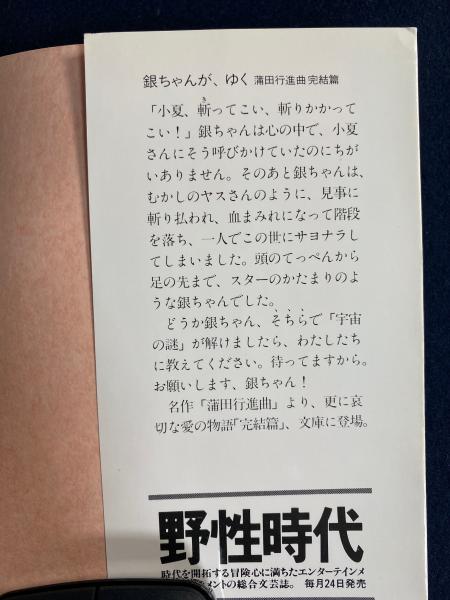 銀ちゃんが、ゆく 蒲田行進曲完結篇
「小夏、斬ってこい、斬りかかって
こい！」銀ちゃんは心の中で、小夏
さんにそう呼びかけていたのにちが
いありません。そのあと銀ちゃんは、
むかしのヤスさんのように、見事に
斬り払われ、血まみれになって階段
を落ち、一人でこの世にサヨナラし
てしまいました。頭のてっぺんから
足の先まで、スターのかたまりのよ
うな銀ちゃんでした。
どうか銀ちゃん、そちらで「宇宙
の謎」が解けましたら、わたしたち
に教えてください。待ってますから。
お願いします、銀ちゃん！
名作「蒲田行進曲」より、更に哀
切な愛の物語「完結篇」、文庫に登場。
野性時代
時代を開拓する冒険心に満ちたエンターテインメ
メントの総合文芸誌。 毎月24日発売